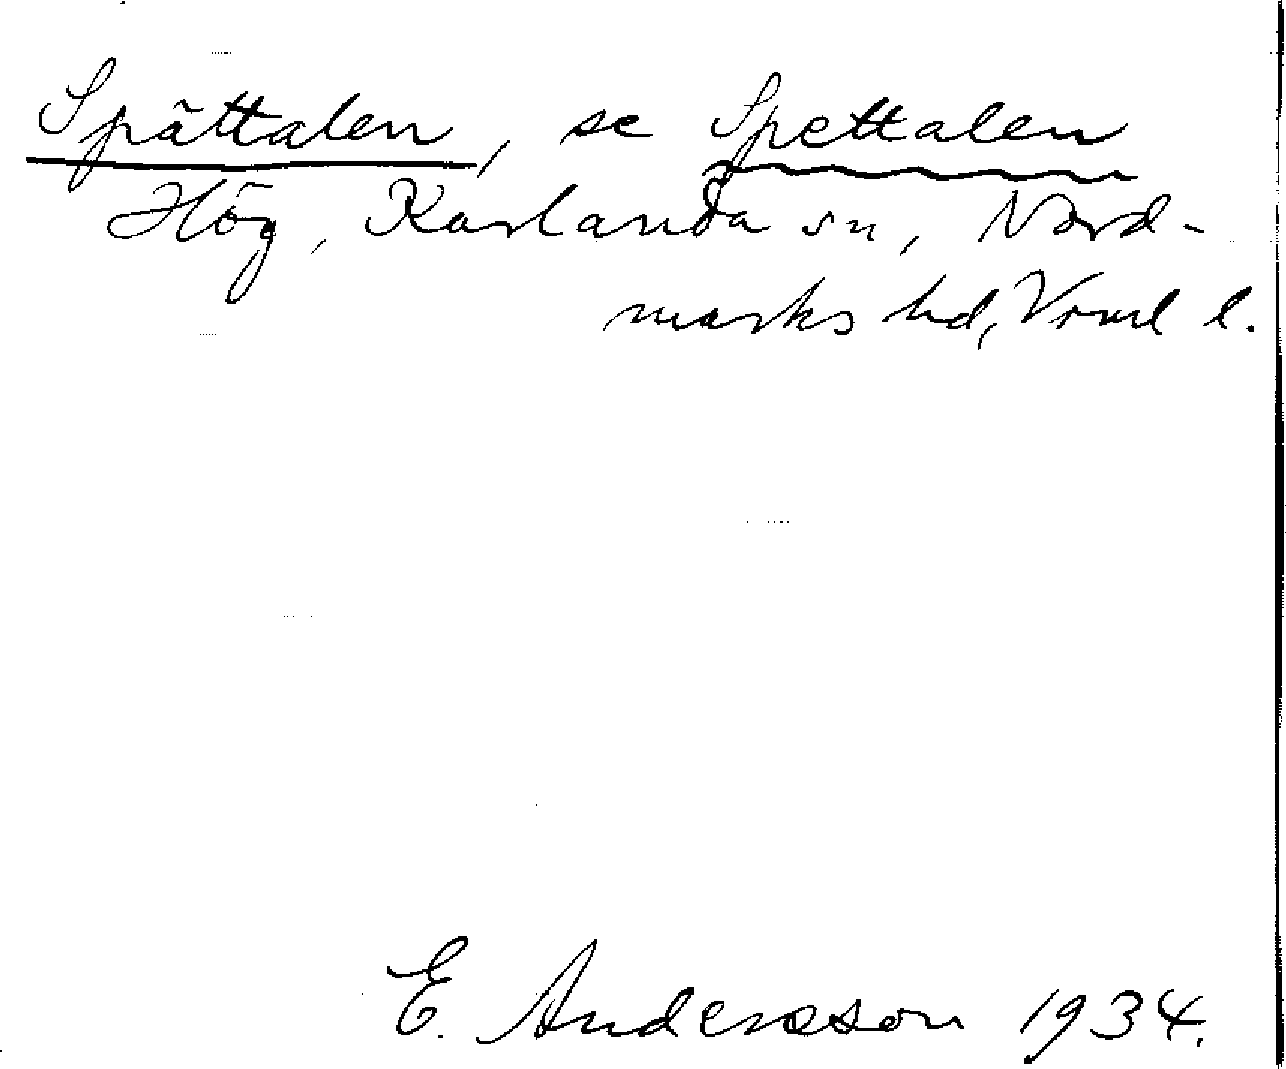 Spättalen, se Spettalen
Hög, Karlanda sn, Nord-
marks hd, Vrml l.
E. Andersson 1934.